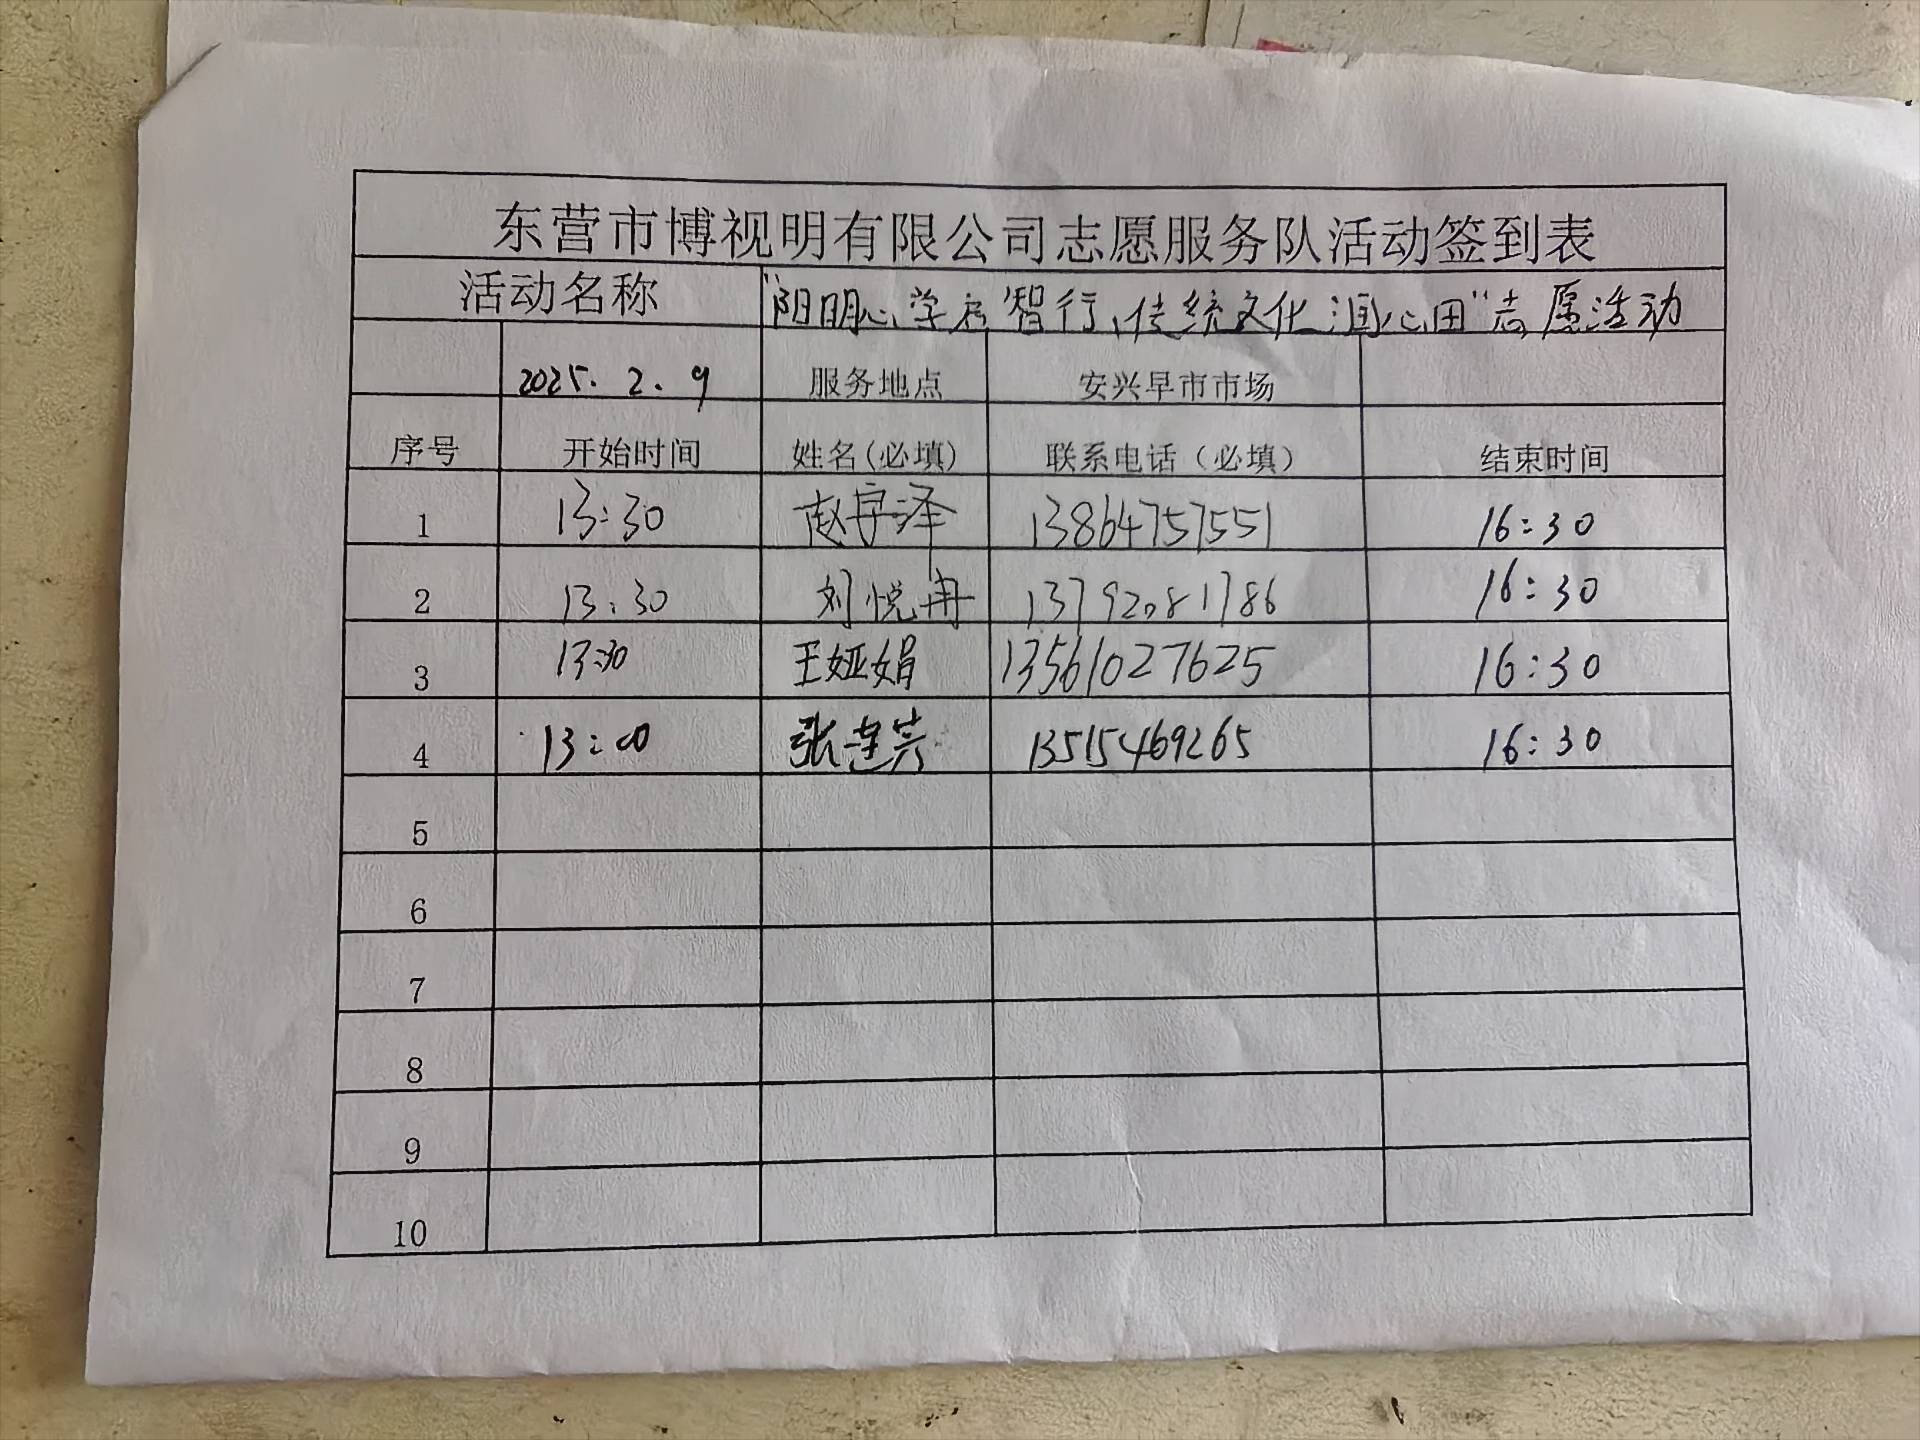 东营市博视明有限公司志愿服务队活动签到表
活动名称 "阳明心学启智行,传统文化润心田"志愿活动
2025.2.9 服务地点 安兴早市市场
序号 开始时间 姓名(必填) 联系电话（必填） 结束时间
1 13:30 赵宇泽 13864757551 16:30
2 13:30 刘悦冉 13792081786 16:30
3 13:30 王娅娟 13561027625 16:30
4 13:00 张莲芳 13515469265 16:30
5
6
7
8
9
10